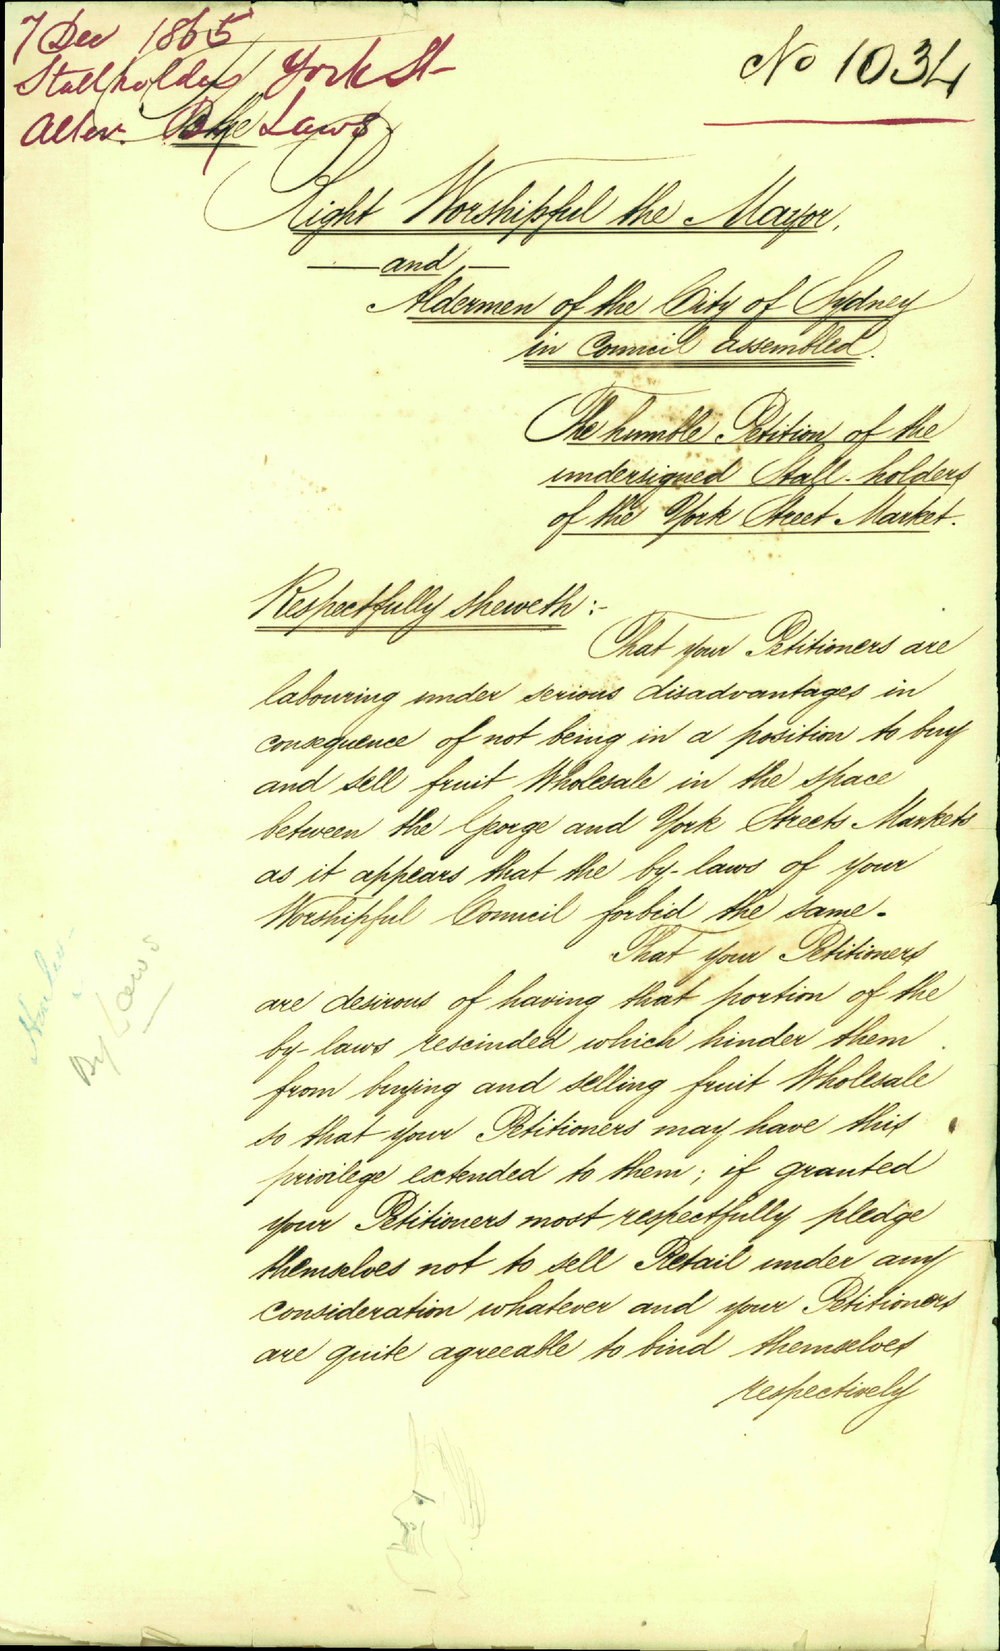 7 Dec 1865
Stallholders York St
Alter. Bye Laws
No 1034
Right Worshipful the Mayor,
and
Aldermen of the City of Sydney
in Council assembled.
The humble Petition of the
undersigned Stall-holders
of the York Street Market.
Respectfully sheweth:-
That your Petitioners are
labouring under serious disadvantages in
consequence of not being in a position to buy
and sell fruit Wholesale in the space
between the George and York Streets Markets
as it appears that the by-laws of your
Worshipful Council forbid the same.
That your Petitioners
are desirous of having that portion of the
by-laws rescinded which hinder them
from buying and selling fruit Wholesale
so that your Petitioners may have this
privilege extended to them; if granted
your Petitioners most respectfully pledge
themselves not to sell Retail under any
consideration whatever and your Petitioners
are quite agreeable to bind themselves
respectively
By Laws